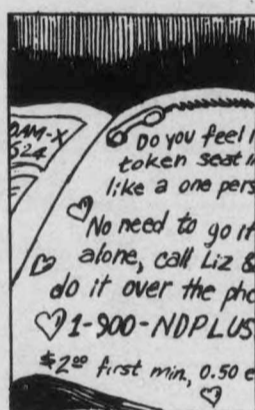 DAM-X
524
Do you feel l
token seat i
like a one pers
No need to go it
alone, call Liz &
do it over the pho
1-900-NDPLUS
$2.00 first min, 0.50 e